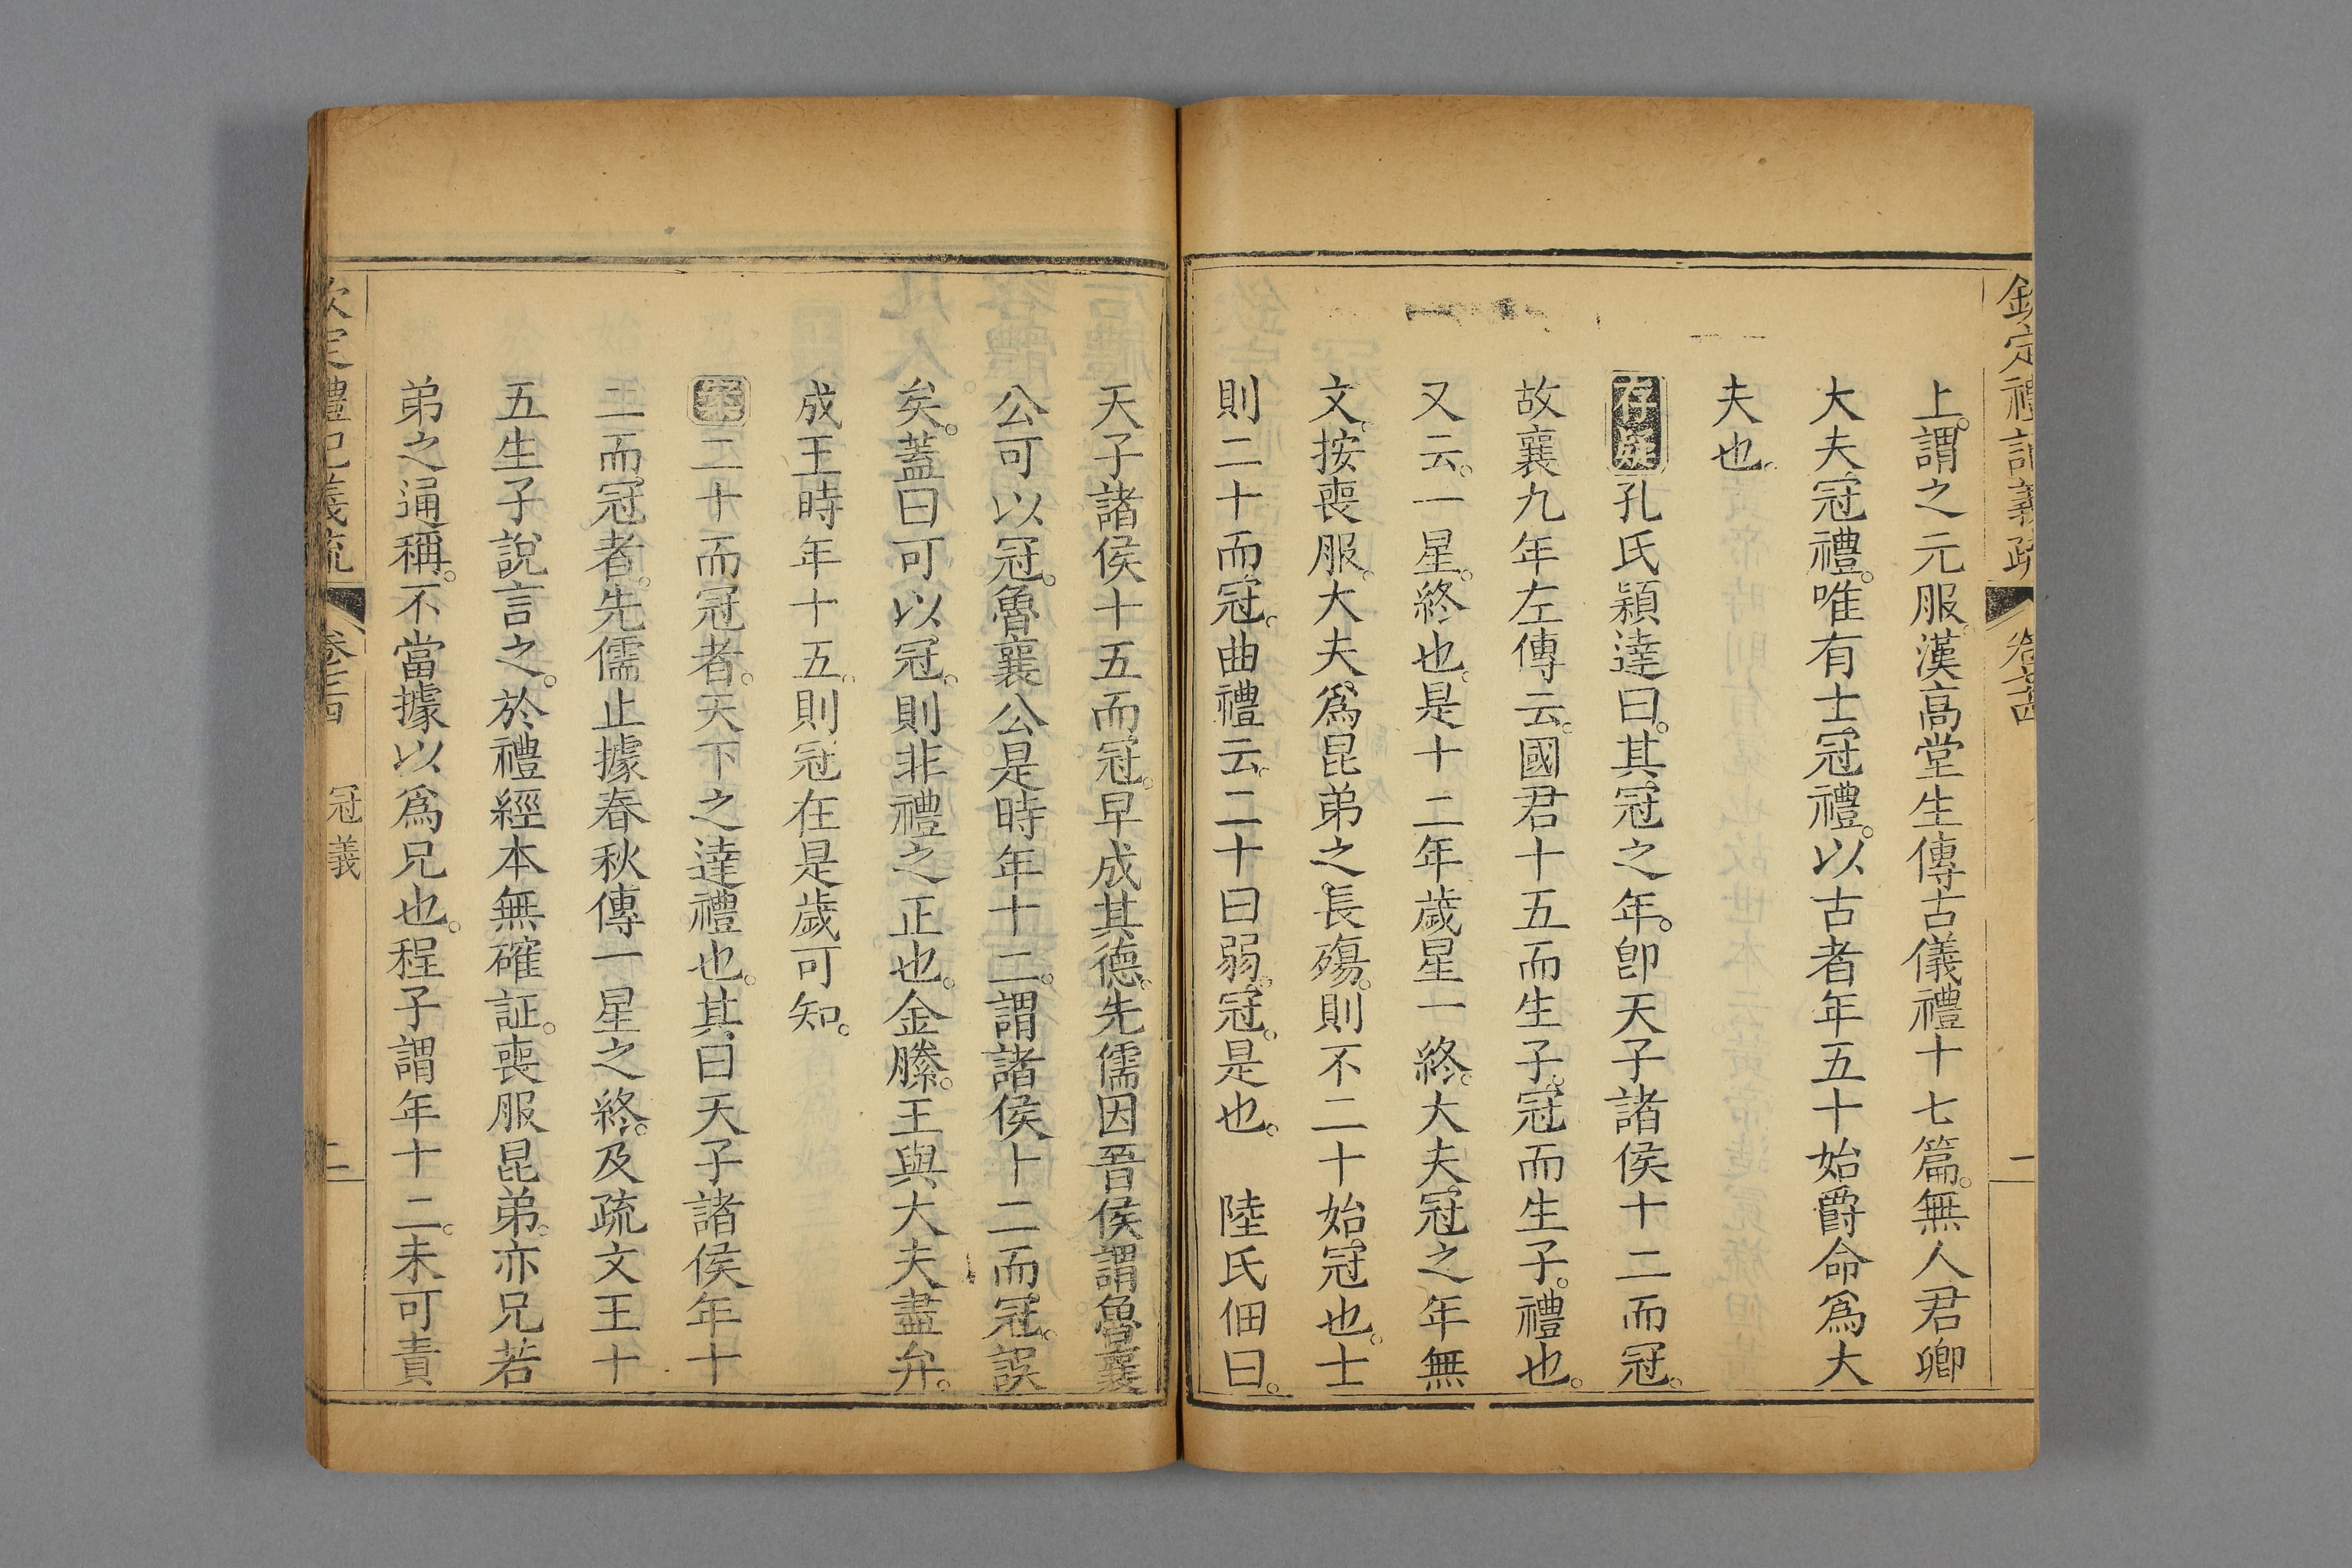 欽定禮記義疏 卷七十四 二
上。謂之元服。漢高堂生傳古儀禮十七篇。無人君卿
大夫冠禮。唯有士冠禮。以古者年五十始爵命爲大
夫也。
存疑孔氏穎達曰。其冠之年。卽天子諸侯十二而冠。
故襄九年左傳云。國君十五而生子。冠而生子。禮也。
又云。一星。終也。是十二年歲星一終。大夫冠之年無
文。按喪服。大夫爲昆弟之長殤。則不二十始冠也。士
則二十而冠。曲禮云。二十曰弱。冠。是也。 陸氏佃曰。
天子諸侯十五而冠。早成其德。先儒因晉侯謂魯襄
公可以冠。魯襄公是時年十二。謂諸侯十二而冠。誤
矣。蓋曰可以冠。則非禮之正也。金縢。王與大夫盡弁。
成王時年十五。則冠在是歲可知。
案二十而冠者。天下之達禮也。其曰天子諸侯年十
二而冠者。先儒止據春秋傳一星之終。及疏文王十
五生子說言之。於禮經本無確証。喪服昆弟。亦兄若
弟之通稱。不當據以爲兄也。程子謂年十二。未可責
欽定禮記義疏 卷七十四 冠義 二